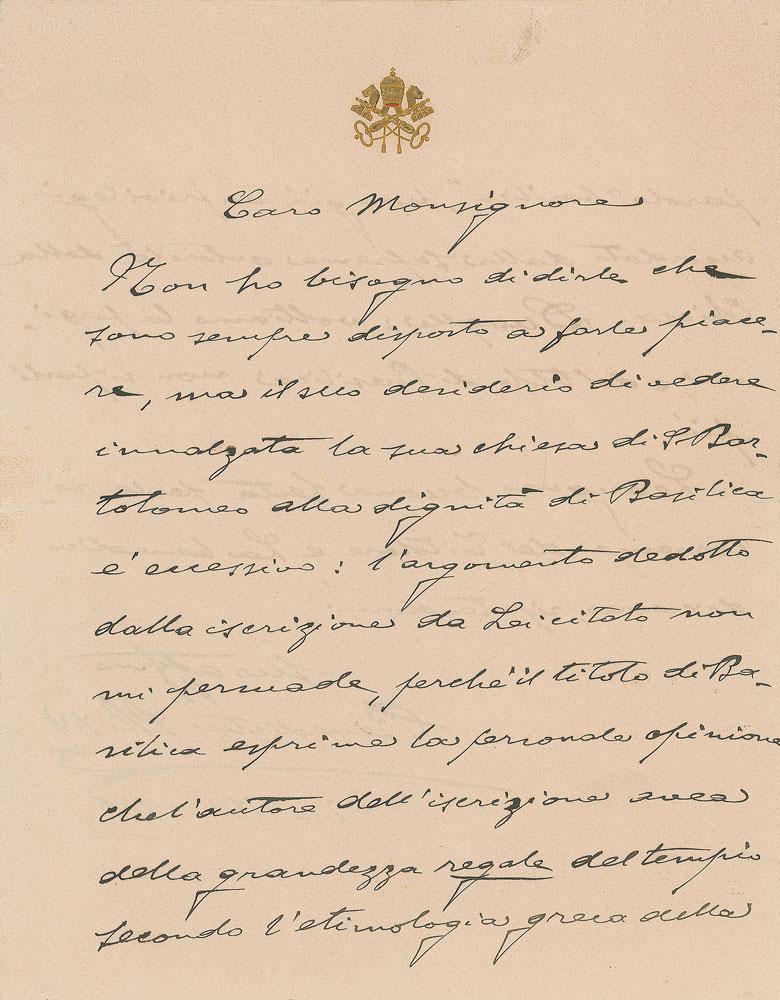 Caro Monsignore
Non ho bisogno di dirle che
sono sempre disposto a farle piace-
re, ma il suo desiderio di vedere
innalzata la sua chiesa di S. Bar-
tolomeo alla dignità di Basilica
e' eccessivo: l'argomento dedotto
dalla iscrizione da Lei citata non
mi persuade, perche' il titolo di Ba-
silica esprime la personale opinione
che l'autore dell'iscrizione avea
della grandezza regale del tempio
secondo l'etimologia greca della